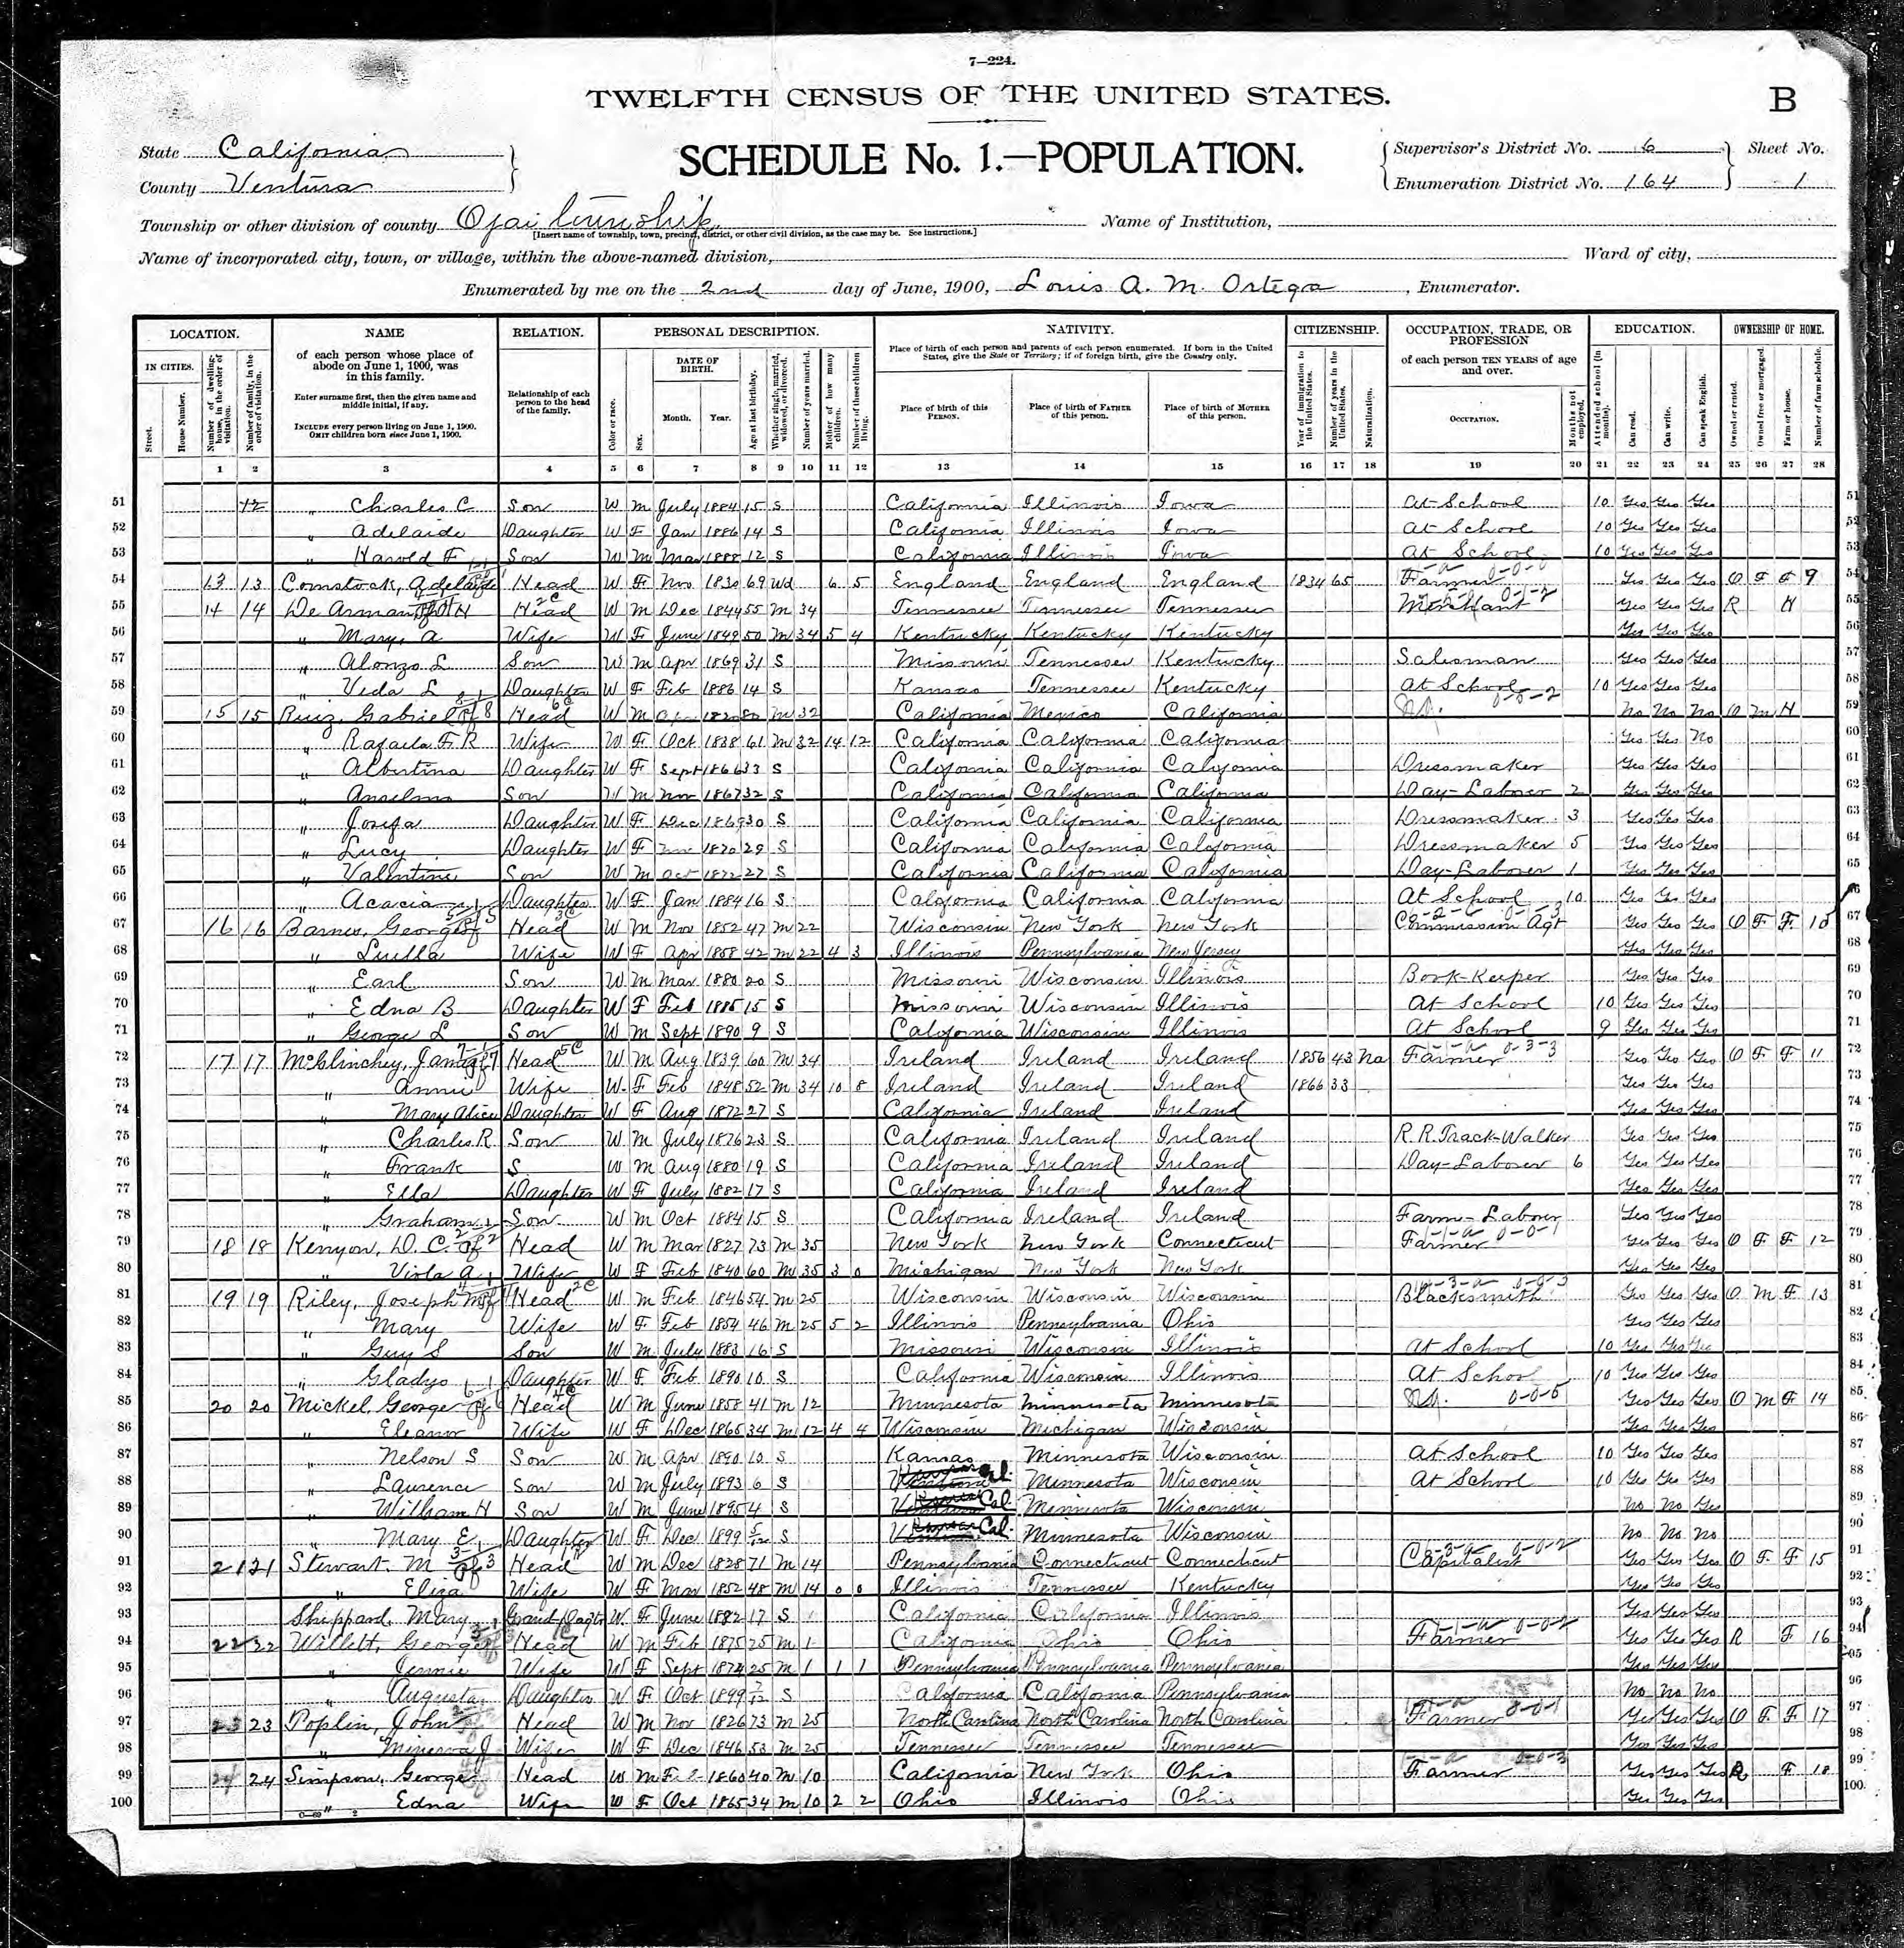 7—224.
TWELFTH CENSUS OF THE UNITED STATES.
B
State California
SCHEDULE No. 1.—POPULATION.
Supervisor's District No. 6 Sheet No.
County Ventura
Enumeration District No. 164 1
Township or other division of county Ojai township Name of Institution,
[Insert name of township, town, precinct, district, or other civil division, as the case may be. See instructions.]
Name of incorporated city, town, or village, within the above-named division, Ward of city,
Enumerated by me on the 2nd day of June, 1900, Louis A. M. Ortega, Enumerator.
LOCATION. NAME RELATION. PERSONAL DESCRIPTION. NATIVITY. CITIZENSHIP. OCCUPATION, TRADE, OR PROFESSION EDUCATION. OWNERSHIP OF HOME.
IN CITIES.
Street.
House Number.
Number of dwelling-house, in the order of visitation.
Number of family, in the order of visitation.
of each person whose place of abode on June 1, 1900, was in this family.
Enter surname first, then the given name and middle initial, if any.
INCLUDE every person living on June 1, 1900.
OMIT children born since June 1, 1900.
Relationship of each person to the head of the family.
Color or race.
Sex.
DATE OF BIRTH.
Month. Year.
Age at last birthday.
Whether single, married, widowed, or divorced.
Number of years married.
Mother of how many children.
Number of these children living.
Place of birth of each person and parents of each person enumerated. If born in the United States, give the State or Territory; if of foreign birth, give the Country only.
Place of birth of this PERSON.
Place of birth of FATHER of this person.
Place of birth of MOTHER of this person.
Year of immigration to the United States.
Number of years in the United States.
Naturalization.
of each person TEN YEARS of age and over.
OCCUPATION.
Months not employed.
Attended school (in months).
Can read.
Can write.
Can speak English.
Owned or rented.
Owned free or mortgaged.
Farm or house.
Number of farm schedule.
1 2 3 4 5 6 7 8 9 10 11 12 13 14 15 16 17 18 19 20 21 22 23 24 25 26 27 28
51 12 " Charles C Son W M July 1884 15 S California Illinois Iowa At School 10 Yes Yes Yes 51
52 " Adelaide Daughter W F Jan 1886 14 S California Illinois Iowa At School 10 Yes Yes Yes 52
53 " Harold F Son W M Mar 1888 12 S California Illinois Iowa At School 10 Yes Yes Yes 53
54 13 13 Comstock, Adelaide Head W F Nov 1830 69 Wd 6 5 England England England 1834 65 Farmer Yes Yes Yes O F F 9 54
55 14 14 De Arman Head W M Dec 1844 55 M 34 Tennessee Tennessee Tennessee Merchant Yes Yes Yes R H 55
56 " Mary, A Wife W F June 1849 50 M 34 5 4 Kentucky Kentucky Kentucky Yes Yes Yes 56
57 " Alonzo L Son W M Apr 1869 31 S Missouri Tennessee Kentucky Salesman Yes Yes Yes 57
58 " Veda L Daughter W F Feb 1886 14 S Kansas Tennessee Kentucky At School 10 Yes Yes Yes 58
59 15 15 Ruiz, Gabriel Head W M 1820 80 M 32 California Mexico California No No No O M H 59
60 " Rafaela F. R Wife W F Oct 1838 61 M 32 14 12 California California California Yes Yes No 60
61 " Albertina Daughter W F Sept 1866 33 S California California California Dressmaker Yes Yes Yes 61
62 " Anselmo Son W M Nov 1867 32 S California California California Day-Laborer 2 Yes Yes Yes 62
63 " Josefa Daughter W F Dec 1869 30 S California California California Dressmaker 3 Yes Yes Yes 63
64 " Lucy Daughter W F Nov 1870 29 S California California California Dressmaker 5 Yes Yes Yes 64
65 " Valentine Son W M Oct 1872 27 S California California California Day-Laborer 1 Yes Yes Yes 65
66 " Acacia Daughter W F Jan 1884 16 S California California California At School 10 Yes Yes Yes 66
67 16 16 Barnes, George Head W M Nov 1852 47 M 22 Wisconsin New York New York Commission Agt Yes Yes Yes O F F 10 67
68 " Luella Wife W F Apr 1858 42 M 22 4 3 Illinois Pennsylvania New Jersey Yes Yes Yes 68
69 " Earl Son W M Mar 1880 20 S Missouri Wisconsin Illinois Book-Keeper Yes Yes Yes 69
70 " Edna B Daughter W F Feb 1885 15 S Missouri Wisconsin Illinois At School 10 Yes Yes Yes 70
71 " George L Son W M Sept 1890 9 S California Wisconsin Illinois At School 9 Yes Yes Yes 71
72 17 17 McGlinchey, James Head W M Aug 1839 60 M 34 Ireland Ireland Ireland 1856 43 Na Farmer Yes Yes Yes O F F 11 72
73 " Annie Wife W F Feb 1848 52 M 34 10 8 Ireland Ireland Ireland 1866 33 Yes Yes Yes 73
74 " Mary Alice Daughter W F Aug 1872 27 S California Ireland Ireland Yes Yes Yes 74
75 " Charles R Son W M July 1876 23 S California Ireland Ireland R.R. Track-Walker Yes Yes Yes 75
76 " Frank S. W M Aug 1880 19 S California Ireland Ireland Day-Laborer 6 Yes Yes Yes 76
77 " Ella Daughter W F July 1882 17 S California Ireland Ireland Yes Yes Yes 77
78 " Graham Son W M Oct 1884 15 S California Ireland Ireland Farm-Laborer Yes Yes Yes 78
79 18 18 Kenyon, D. C. Head W M Mar 1827 73 M 35 New York New York Connecticut Farmer Yes Yes Yes O F F 12 79
80 " Viola A Wife W F Feb 1840 60 M 35 3 0 Michigan New York New York Yes Yes Yes 80
81 19 19 Riley, Joseph Head W M Feb 1846 54 M 25 Wisconsin Wisconsin Wisconsin Blacksmith Yes Yes Yes O M F 13 81
82 " Mary Wife W F Feb 1854 46 M 25 5 2 Illinois Pennsylvania Ohio Yes Yes Yes 82
83 " Guy S Son W M July 1883 16 S Missouri Wisconsin Illinois At School 10 Yes Yes Yes 83
84 " Gladys Daughter W F Feb 1890 10 S California Wisconsin Illinois At School 10 Yes Yes Yes 84
85 20 20 Mickel, George Head W M June 1858 41 M 12 Minnesota Minnesota Minnesota Yes Yes Yes O M F 14 85
86 " Eleanor Wife W F Dec 1865 34 M 12 4 4 Wisconsin Michigan Wisconsin Yes Yes Yes 86
87 " Nelson S Son W M Apr 1890 10 S Kansas Minnesota Wisconsin At School 10 Yes Yes Yes 87
88 " Laurence Son W M July 1893 6 S Cal. Minnesota Wisconsin At School 10 Yes Yes Yes 88
89 " William H Son W M June 1895 4 S Cal. Minnesota Wisconsin No No Yes 89
90 " Mary E Daughter W F Dec 1899 5/12 S Cal. Minnesota Wisconsin No No No 90
91 21 21 Stewart, M Head W M Dec 1828 71 M 14 Pennsylvania Connecticut Connecticut Capitalist Yes Yes Yes O F F 15 91
92 " Eliza Wife W F Mar 1852 48 M 14 0 0 Illinois Tennessee Kentucky Yes Yes Yes 92
93 Sheppard, Mary Grand Dagtr W F June 1882 17 S California California Illinois Yes Yes Yes 93
94 22 22 Willett, George Head W M Feb 1875 25 M 1 California Ohio Ohio Farmer Yes Yes Yes R F 16 94
95 " Jennie Wife W F Sept 1874 25 M 1 1 1 Pennsylvania Pennsylvania Pennsylvania Yes Yes Yes 95
96 " Augusta Daughter W F Oct 1899 7/12 S California California Pennsylvania No No No 96
97 23 23 Poplin, John Head W M Nov 1826 73 M 25 North Carolina North Carolina North Carolina Farmer Yes Yes Yes O F F 17 97
98 " Minerva J Wife W F Dec 1846 53 M 25 Tennessee Tennessee Tennessee Yes Yes Yes 98
99 24 24 Simpson, George Head W M Feb 1860 40 M 10 California New York Ohio Farmer Yes Yes Yes R F 18 99
100 " Edna Wife W F Oct 1865 34 M 10 2 2 Ohio Illinois Ohio Yes Yes Yes 100